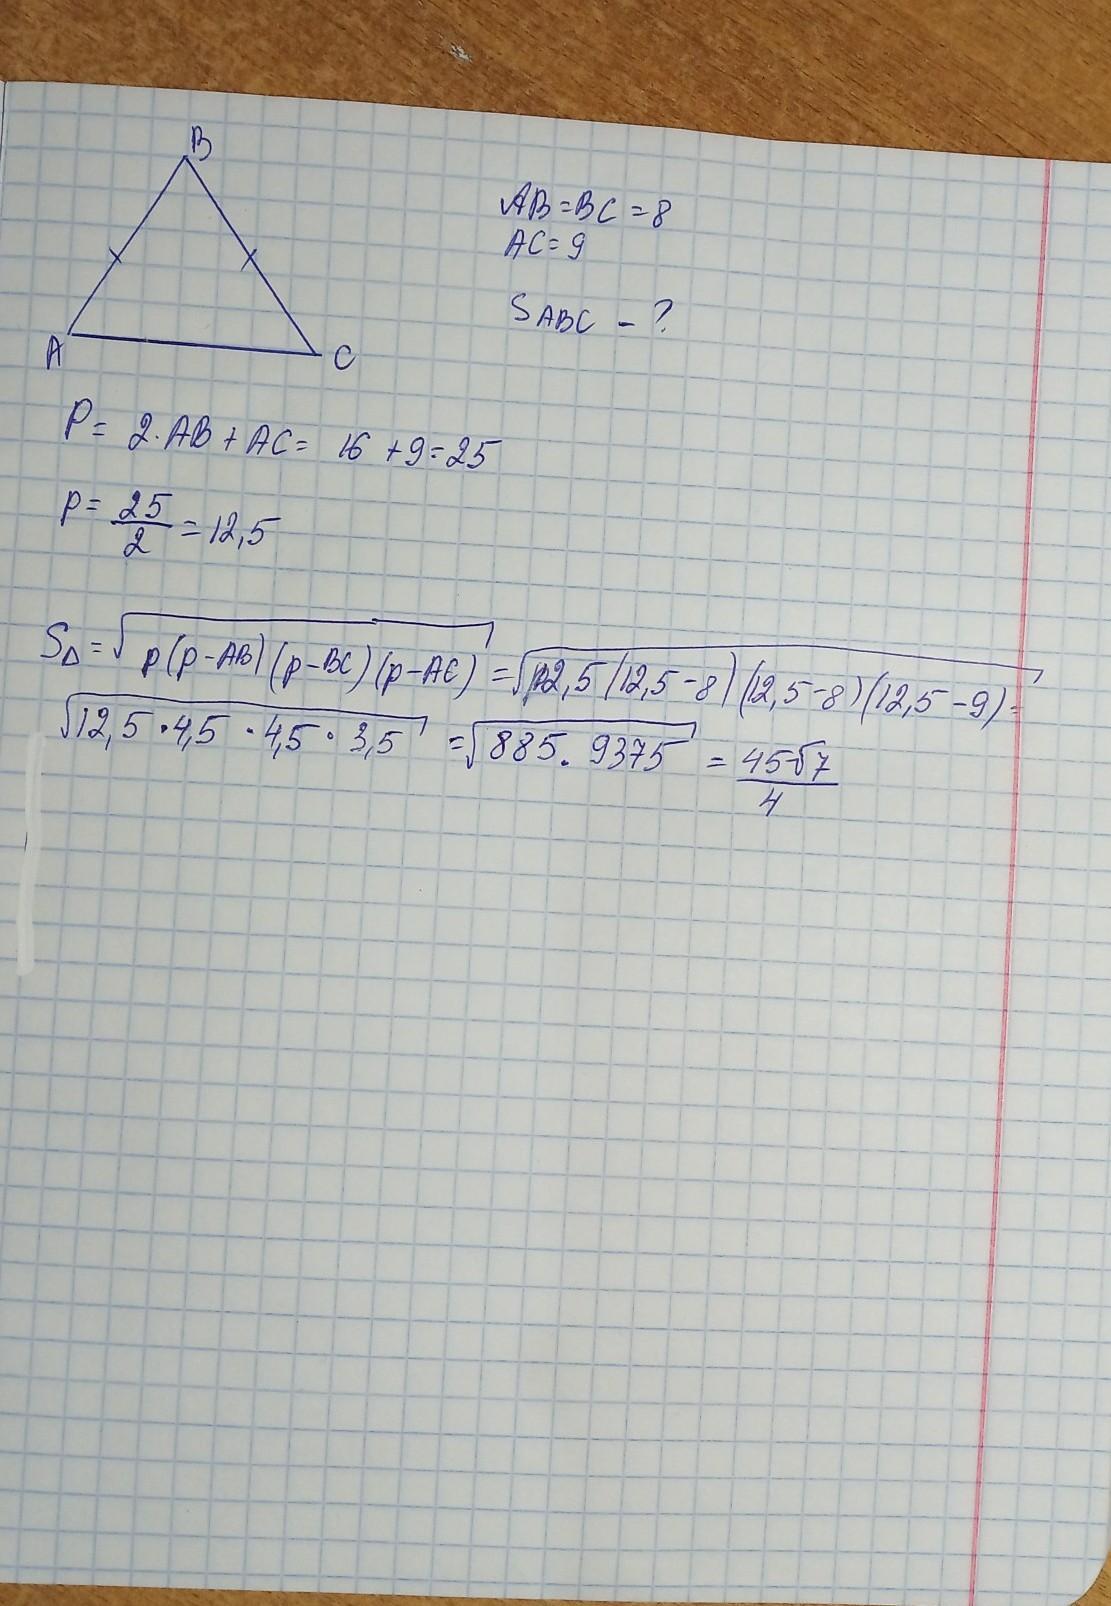 B
A
C
AB=BC=8
AC=9
S ABC - ?
P= 2·AB+AC= 16 +9=25
p= 25/2 =12,5
S△=√p(p-AB)(p-BC)(p-AC)=√12,5(12,5-8)(12,5-8)(12,5-9)=
√12,5·4,5·4,5·3,5 =√885.9375 = 45√7/4